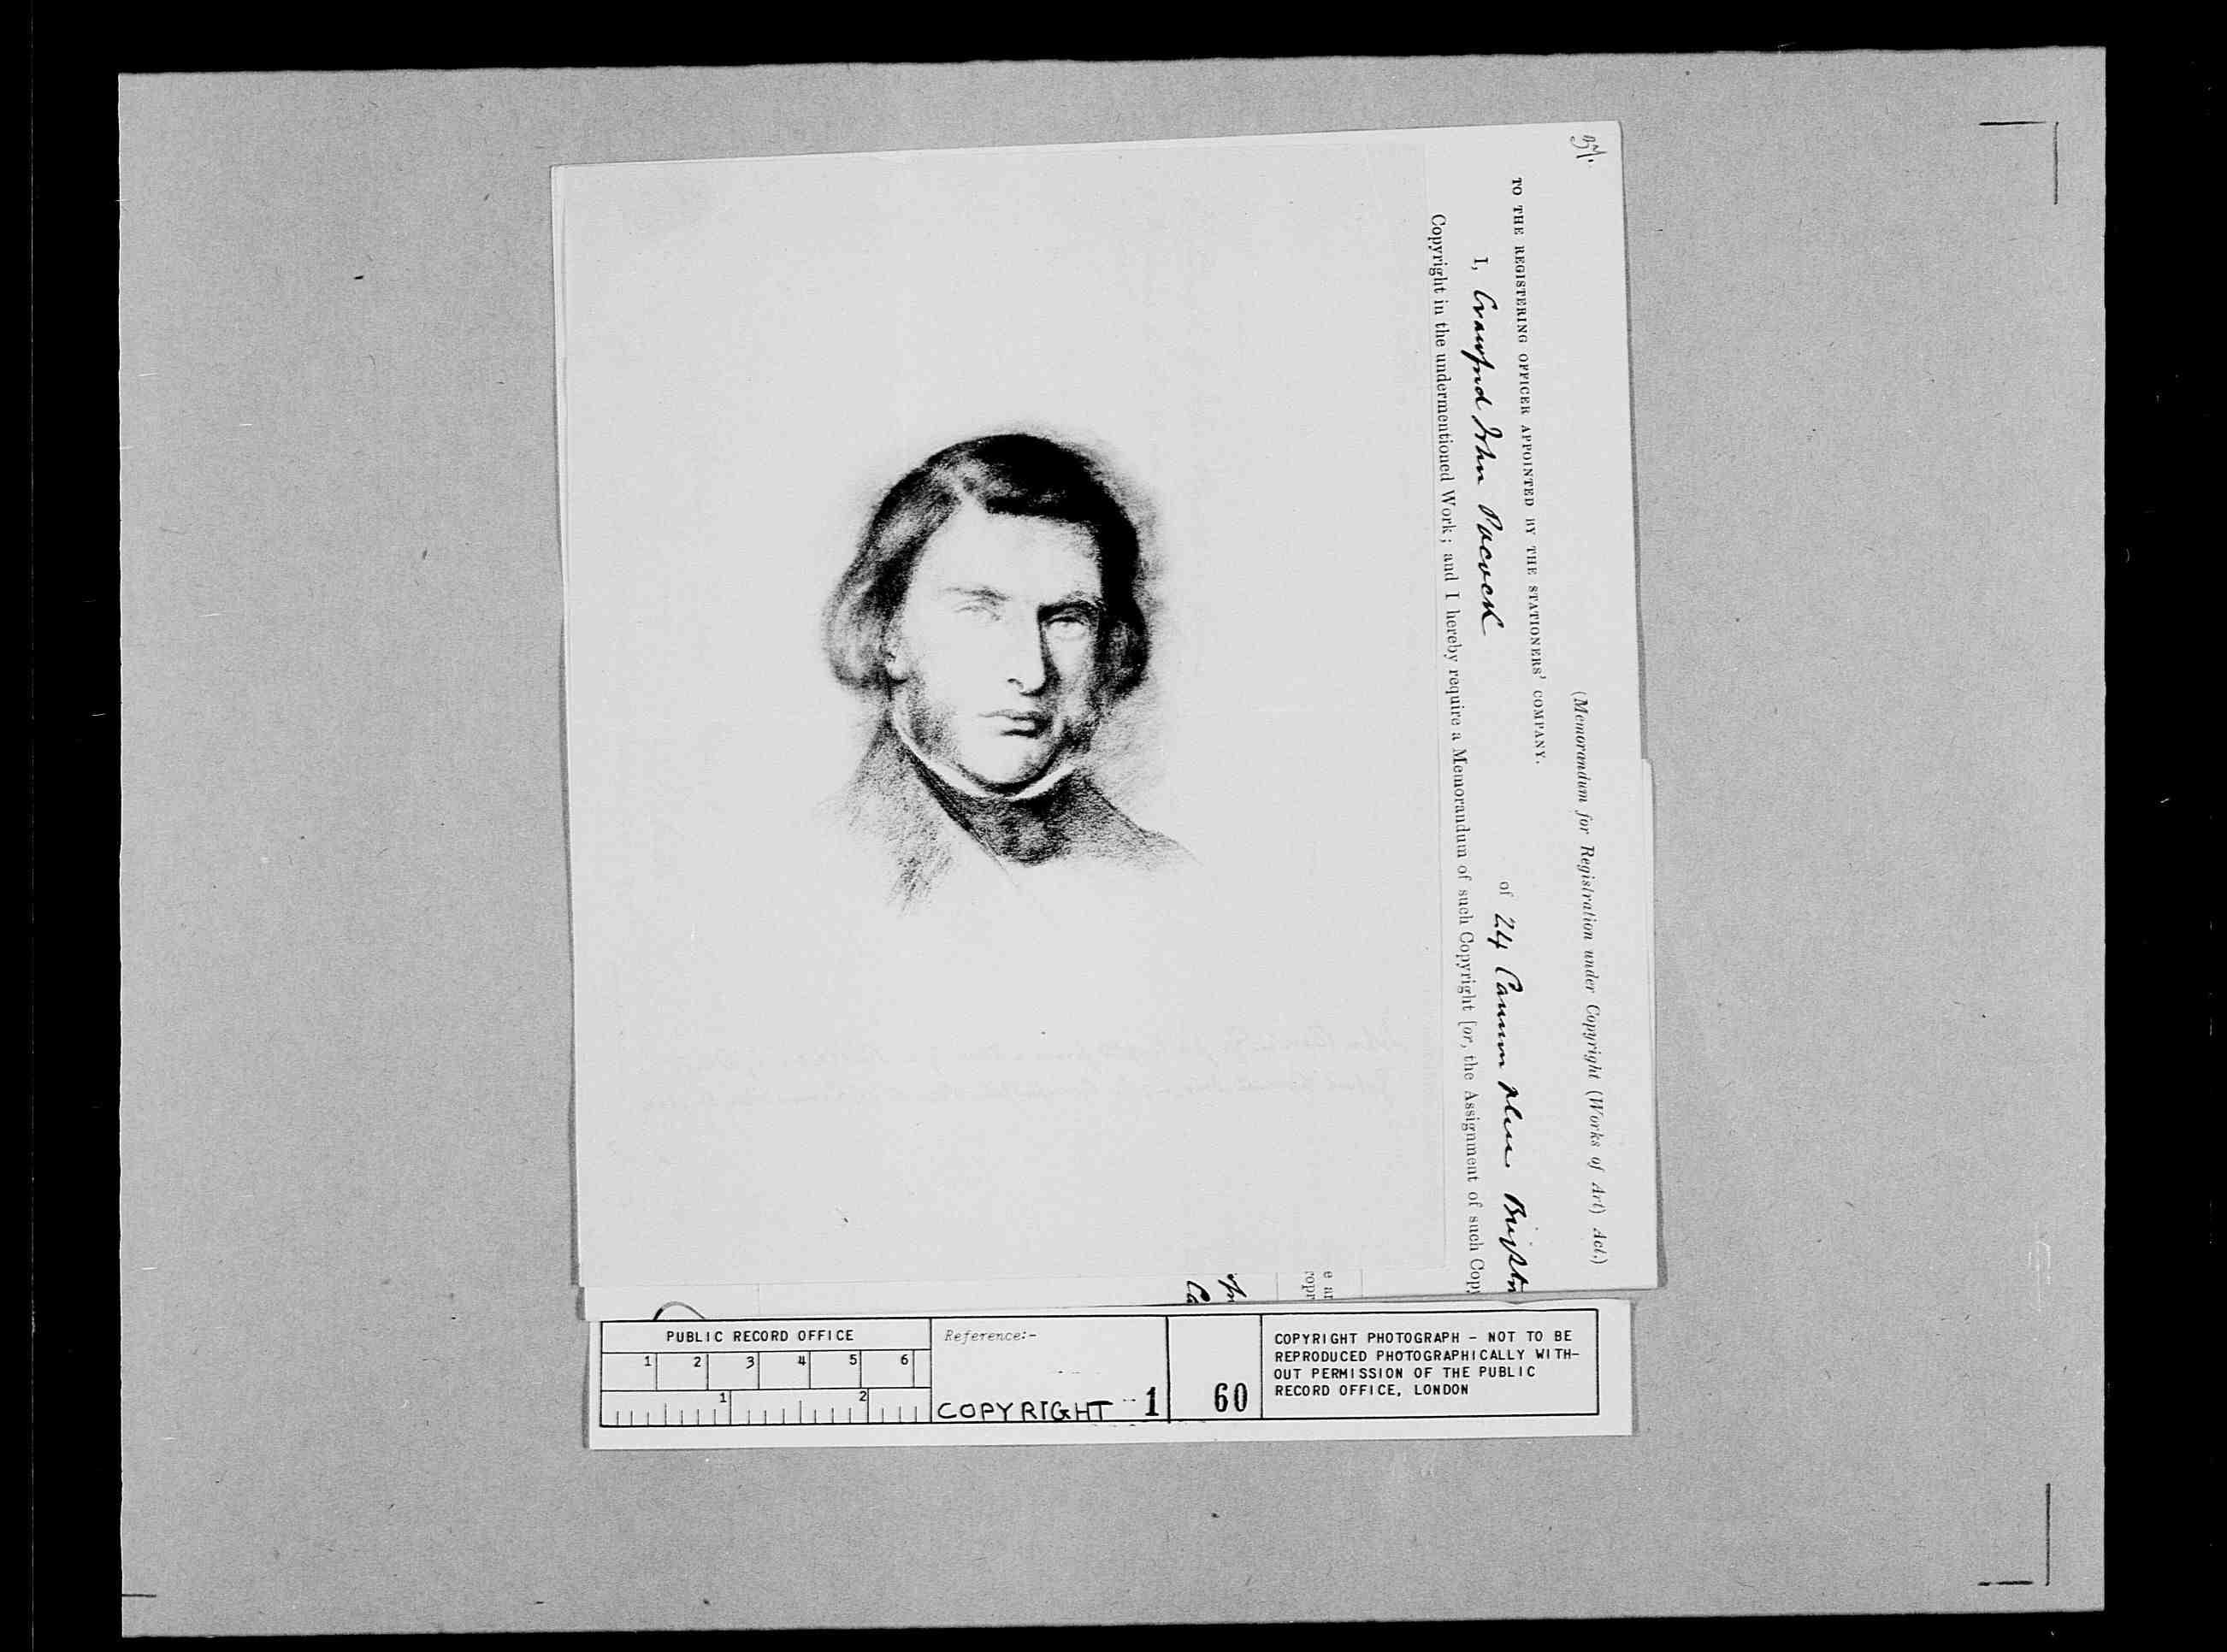 57.
(Memorandum for Registration under Copyright (Works of Art) Act.)
TO THE REGISTERING OFFICER APPOINTED BY THE STATIONERS' COMPANY.
I, Crawford John Pocock of 24 Cannon Place Brighton
Copyright in the undermentioned Work; and I hereby require a Memorandum of such Copyright [or, the Assignment of such Copy
e an
ropr
Ca
PUBLIC RECORD OFFICE
1 2 3 4 5 6
1 2
Reference:-
COPYRIGHT 1
60
COPYRIGHT PHOTOGRAPH - NOT TO BE
REPRODUCED PHOTOGRAPHICALLY WITH-
OUT PERMISSION OF THE PUBLIC
RECORD OFFICE, LONDON